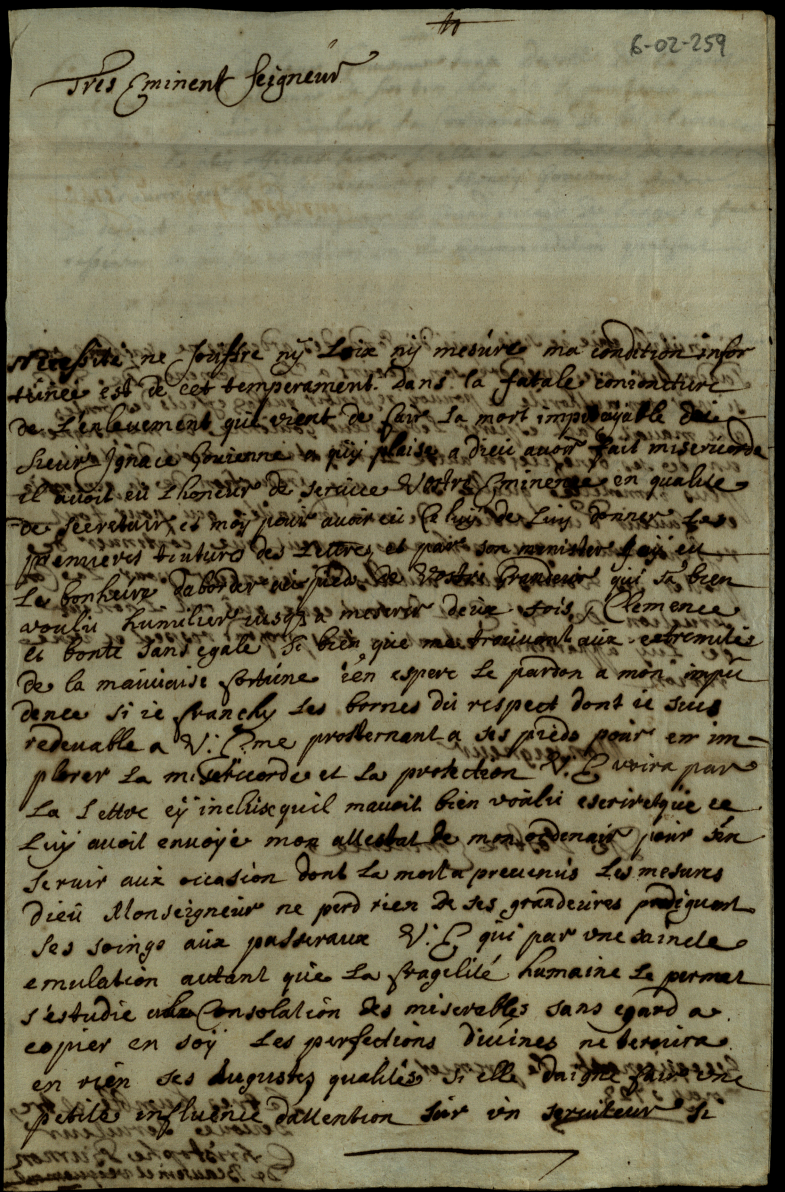 6-02-259
Tres Eminent Seigneur
Necessite ne souffre nÿ Loix nÿ mesure ma condition infor
tunée est de cet temperament. Dans la fatale conioncture
de L'enlevement quil vient de fair La mort impitoyable du
Sieur Ignace Gouienne a quÿ plaise a dieu avoir fait misericorde
il avoit eu Lhoneur de service Vostre Eminence en qualite
de secretair et moÿ pour avoir eu Celuÿ de Luÿ donner Les
premieres teintures des Lettres et par son ministere j'aÿ eu
Le bonheur d'aborder aux pieds de Vostre Grandeur qui s'a bien
voulu humilier iusqu a me servir deux fois, Clemence
et bonte sans egale, si bien que me trouvant aux extremités
de la mauvaise fortune i'en espere Le pardon a mon impu
dence si ie franchÿ Les bornes du respect dont ie suis
redevable a V: E: me prosternant a ses pieds pour en im-
plorer La misericorde et La protection V: E voira par
La Lettre cÿ incluse quil mavoit bien voulu escrire que ce
Luÿ avoit envoÿé mon attestat de mon ordenair pour s'en
servir aux occasion dont La mort a prevenus Les mesures
Dieu Monseigneur ne perd rien de ses grandeures prodiguant
ses soings aux passeraux V: E qui par une saincte
emulation autant que La fragelité humaine Le permet
s'estudie a la Consolation des miserables sans egard a
copier en soÿ Les perfections divines ne ternira
en rien ses Augustes qualités si elle daigne fair une
petite influence d'attention sur un serviteur si